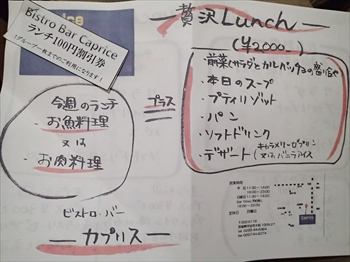 Bistro Bar Caprice
ランチ100円割引券
(1グループ一枚までのご利用になります!)
贅沢Lunch
(¥2000-)
・前菜(サラダとカルパッチョの盛り合せ)
・本日のスープ
・プティリゾット
・パン
・ソフトドリンク
・デザート(キャラメリーゼプリン
又はバニラアイス
プラス
今週のランチ
・お魚料理
又は
・お肉料理
ビストロ・バー
カプリス
営業時間
定休日